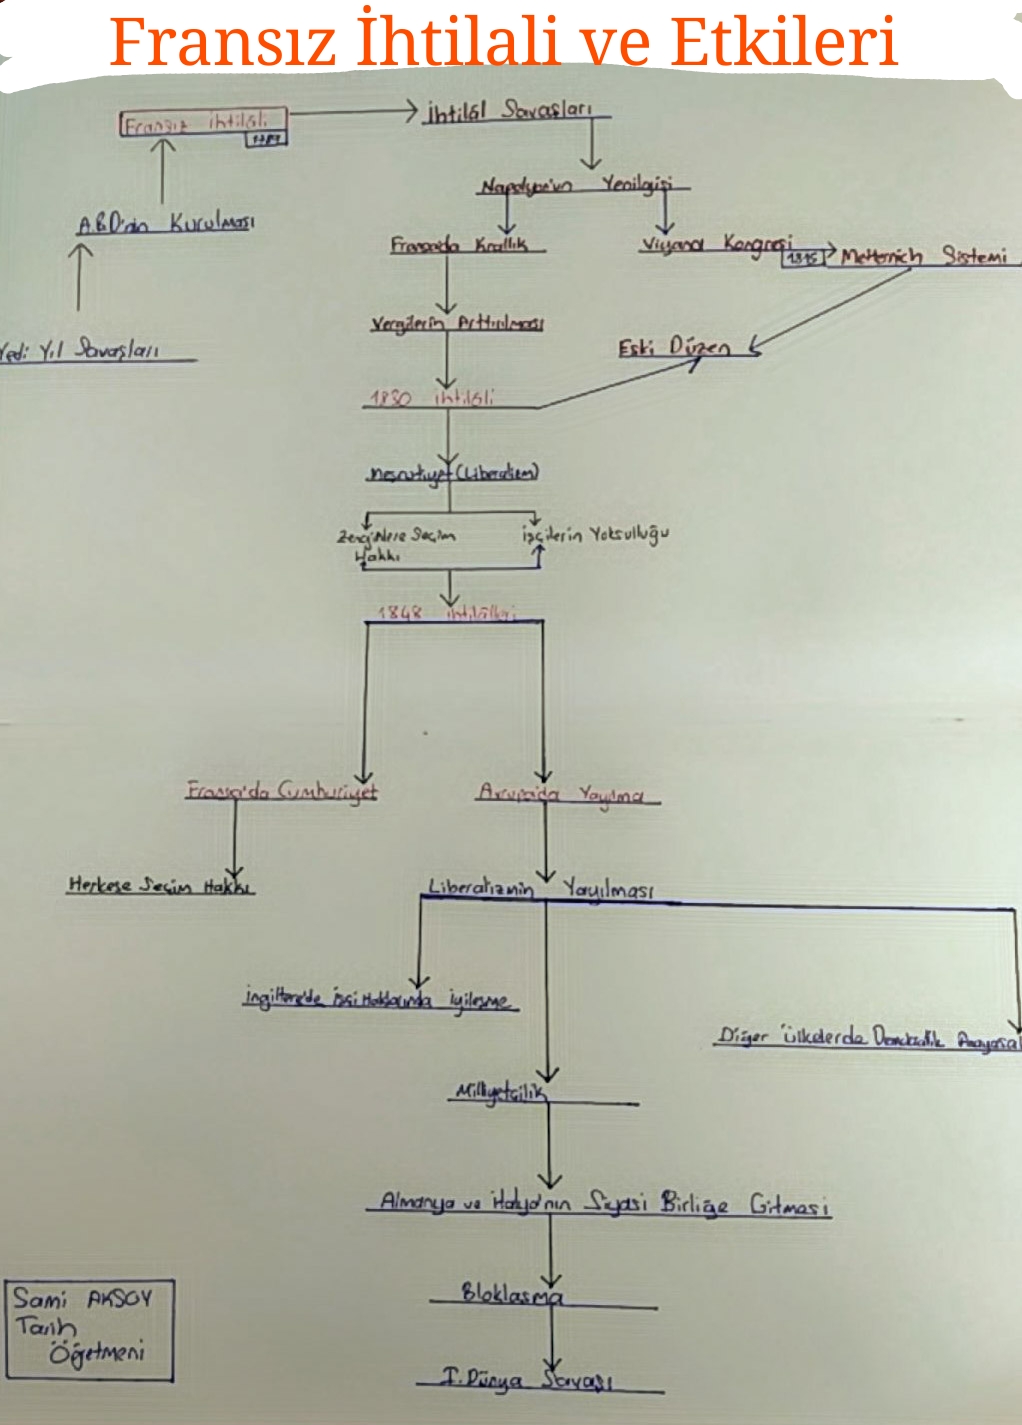 Fransız İhtilali ve Etkileri
Fransız ihtilali
1789
İhtilâl Savaşları
Napolyon'un Yenilgisi
A.B.D'nin Kurulması
Fransada Krallık
Viyana Kongresi
1815
Metternich Sistemi
Vergilerin Arttırılması
Yedi Yıl Savaşları
Eski Düzen
1830 ihtilâli
Meşrutiyet (Liberalizm)
Zenginlere Seçim
Hakkı
İşçilerin Yoksulluğu
1848 ihtilâlleri
Fransa'da Cumhuriyet
Avrupa'da Yayılma
Herkese Seçim Hakkı
Liberalizmin Yayılması
İngiltere'de İşçi Haklarında İyileşme
Diğer Ülkelerde Demokratik Anayasal
Milliyetçilik
Almanya ve İtalya'nın Siyasi Birliğe Gitmesi
Bloklaşma
I. Dünya Savaşı
Sami AKSOY
Tarih
Öğretmeni